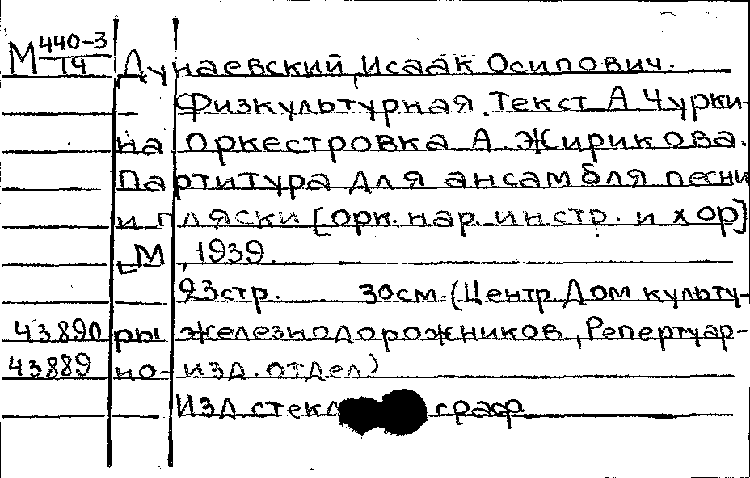 М 440-3/14 Дунаевский, Исаак Осипович.
Физкультурная. Текст А Чурки-
на Оркестровка А. Жирикова.
Партитура для ансамбля песни
и пляски [орк. нар. инстр. и хор]
М, 1939.
23стр. 30см. (Центр. Дом культу-
43890 ры железнодорожников, Репертуар-
43889 но-изд. отдел)
Изд стекл граф